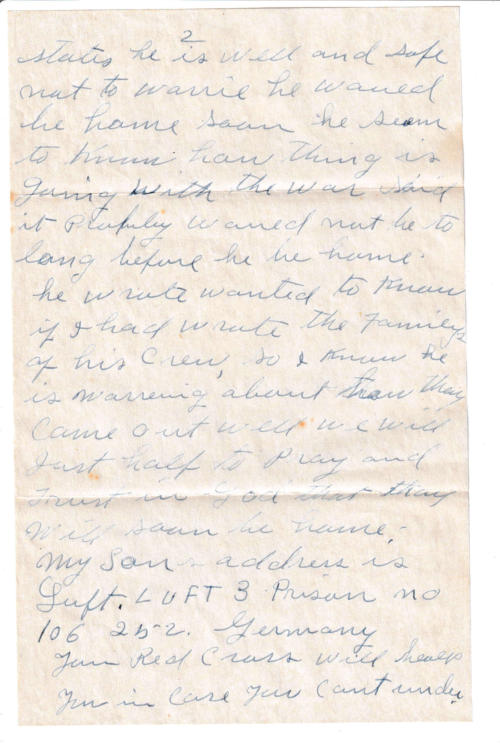 2
states he is well and safe
not to warrie he waued
be home soon he seem
to know how thing is
going with the war said
it Plofuley waued not be to
long before he be home.
he wrote wanted to know
if I had wrote the Famileys
of his Crew, so I know he
is warreing about how thay
came out well we will
Just half to Pray and
trust in God that thay
will soon be home.
My Son address is
Luft. LUFT 3 Prison no
106 252. Germany
Your Red Cross will healp
you in case you cant under